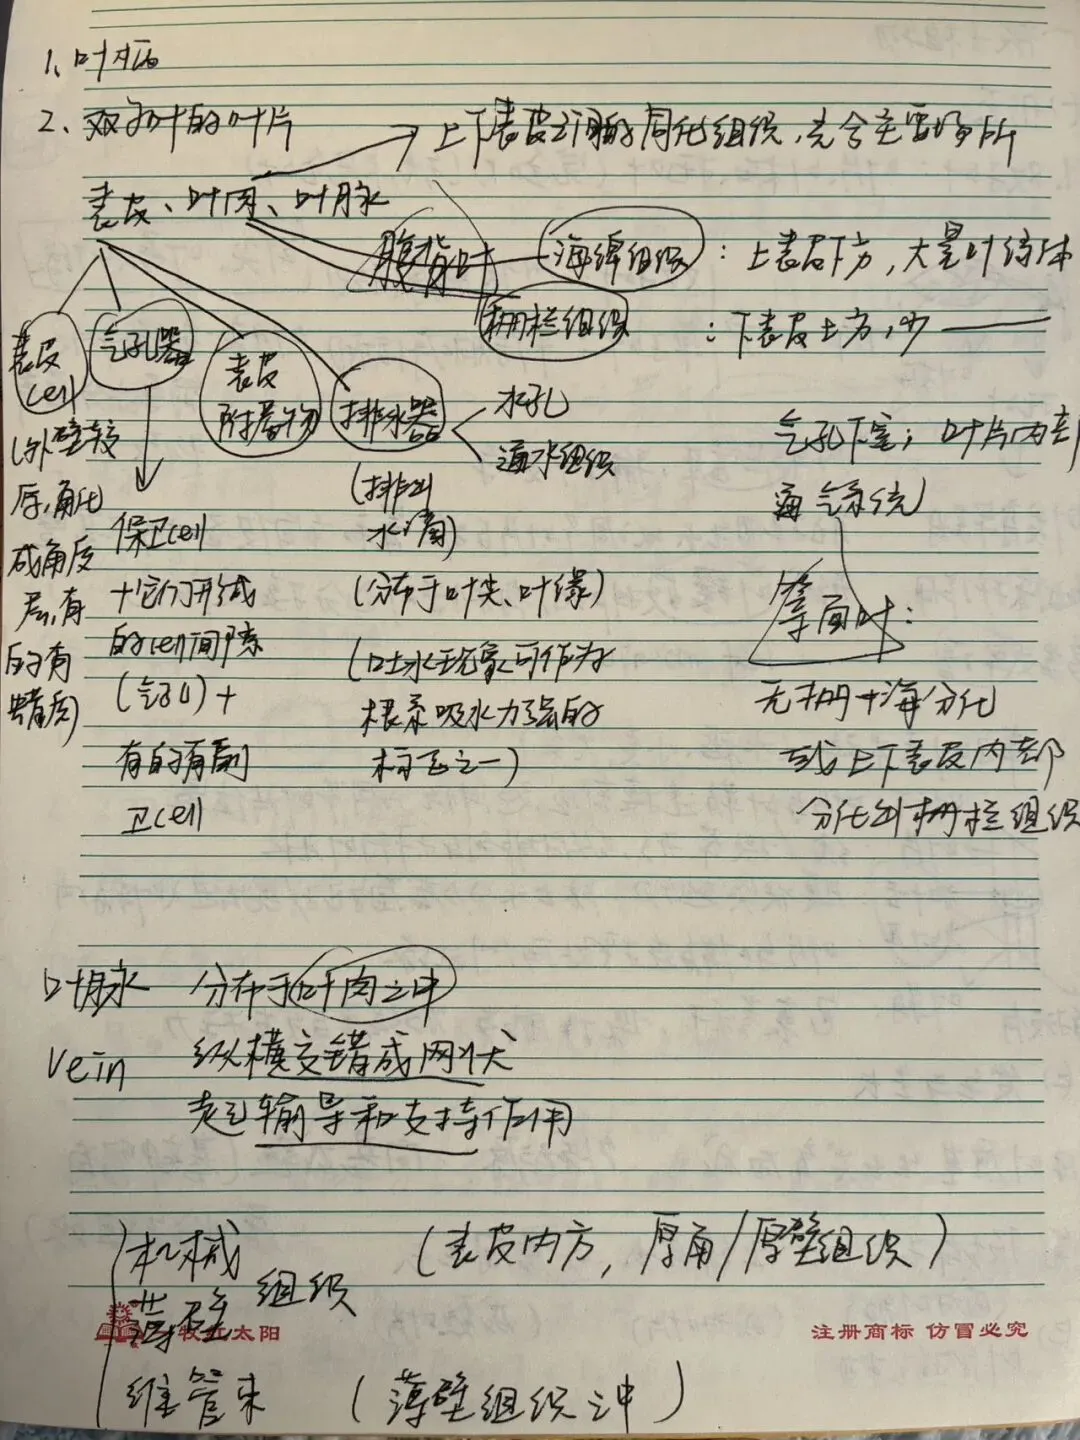 1、叶柄
2、双子叶的叶片
上下表皮之间的同化组织，光合主要场所
表皮、叶肉、叶脉
腹背叶
海绵组织：上表皮下方，大量叶绿体
栅栏组织：下表皮上方，少
表皮cell
(外壁较厚，角化成角质层，有的有蜡质)
气孔器
保卫cell
+它们形成
的cell间隙
(气孔)+
有的有副
卫cell
表皮
附着物
排水器
水孔
通水组织
(排出
水滴)
(分布于叶尖、叶缘)
(吐水现象可作为
根系吸水力强的
标志之一)
气孔下室；叶片内部
通气系统
等面叶：
无栅+海分化
或上下表皮内部
分化出栅栏组织
叶脉 分布于叶肉之中
vein 纵横交错成网状
起输导和支持作用
机械
薄壁
组织
(表皮内方，厚角/厚壁组织)
维管束 (薄壁组织之中)
牧红太阳
注册商标 仿冒必究